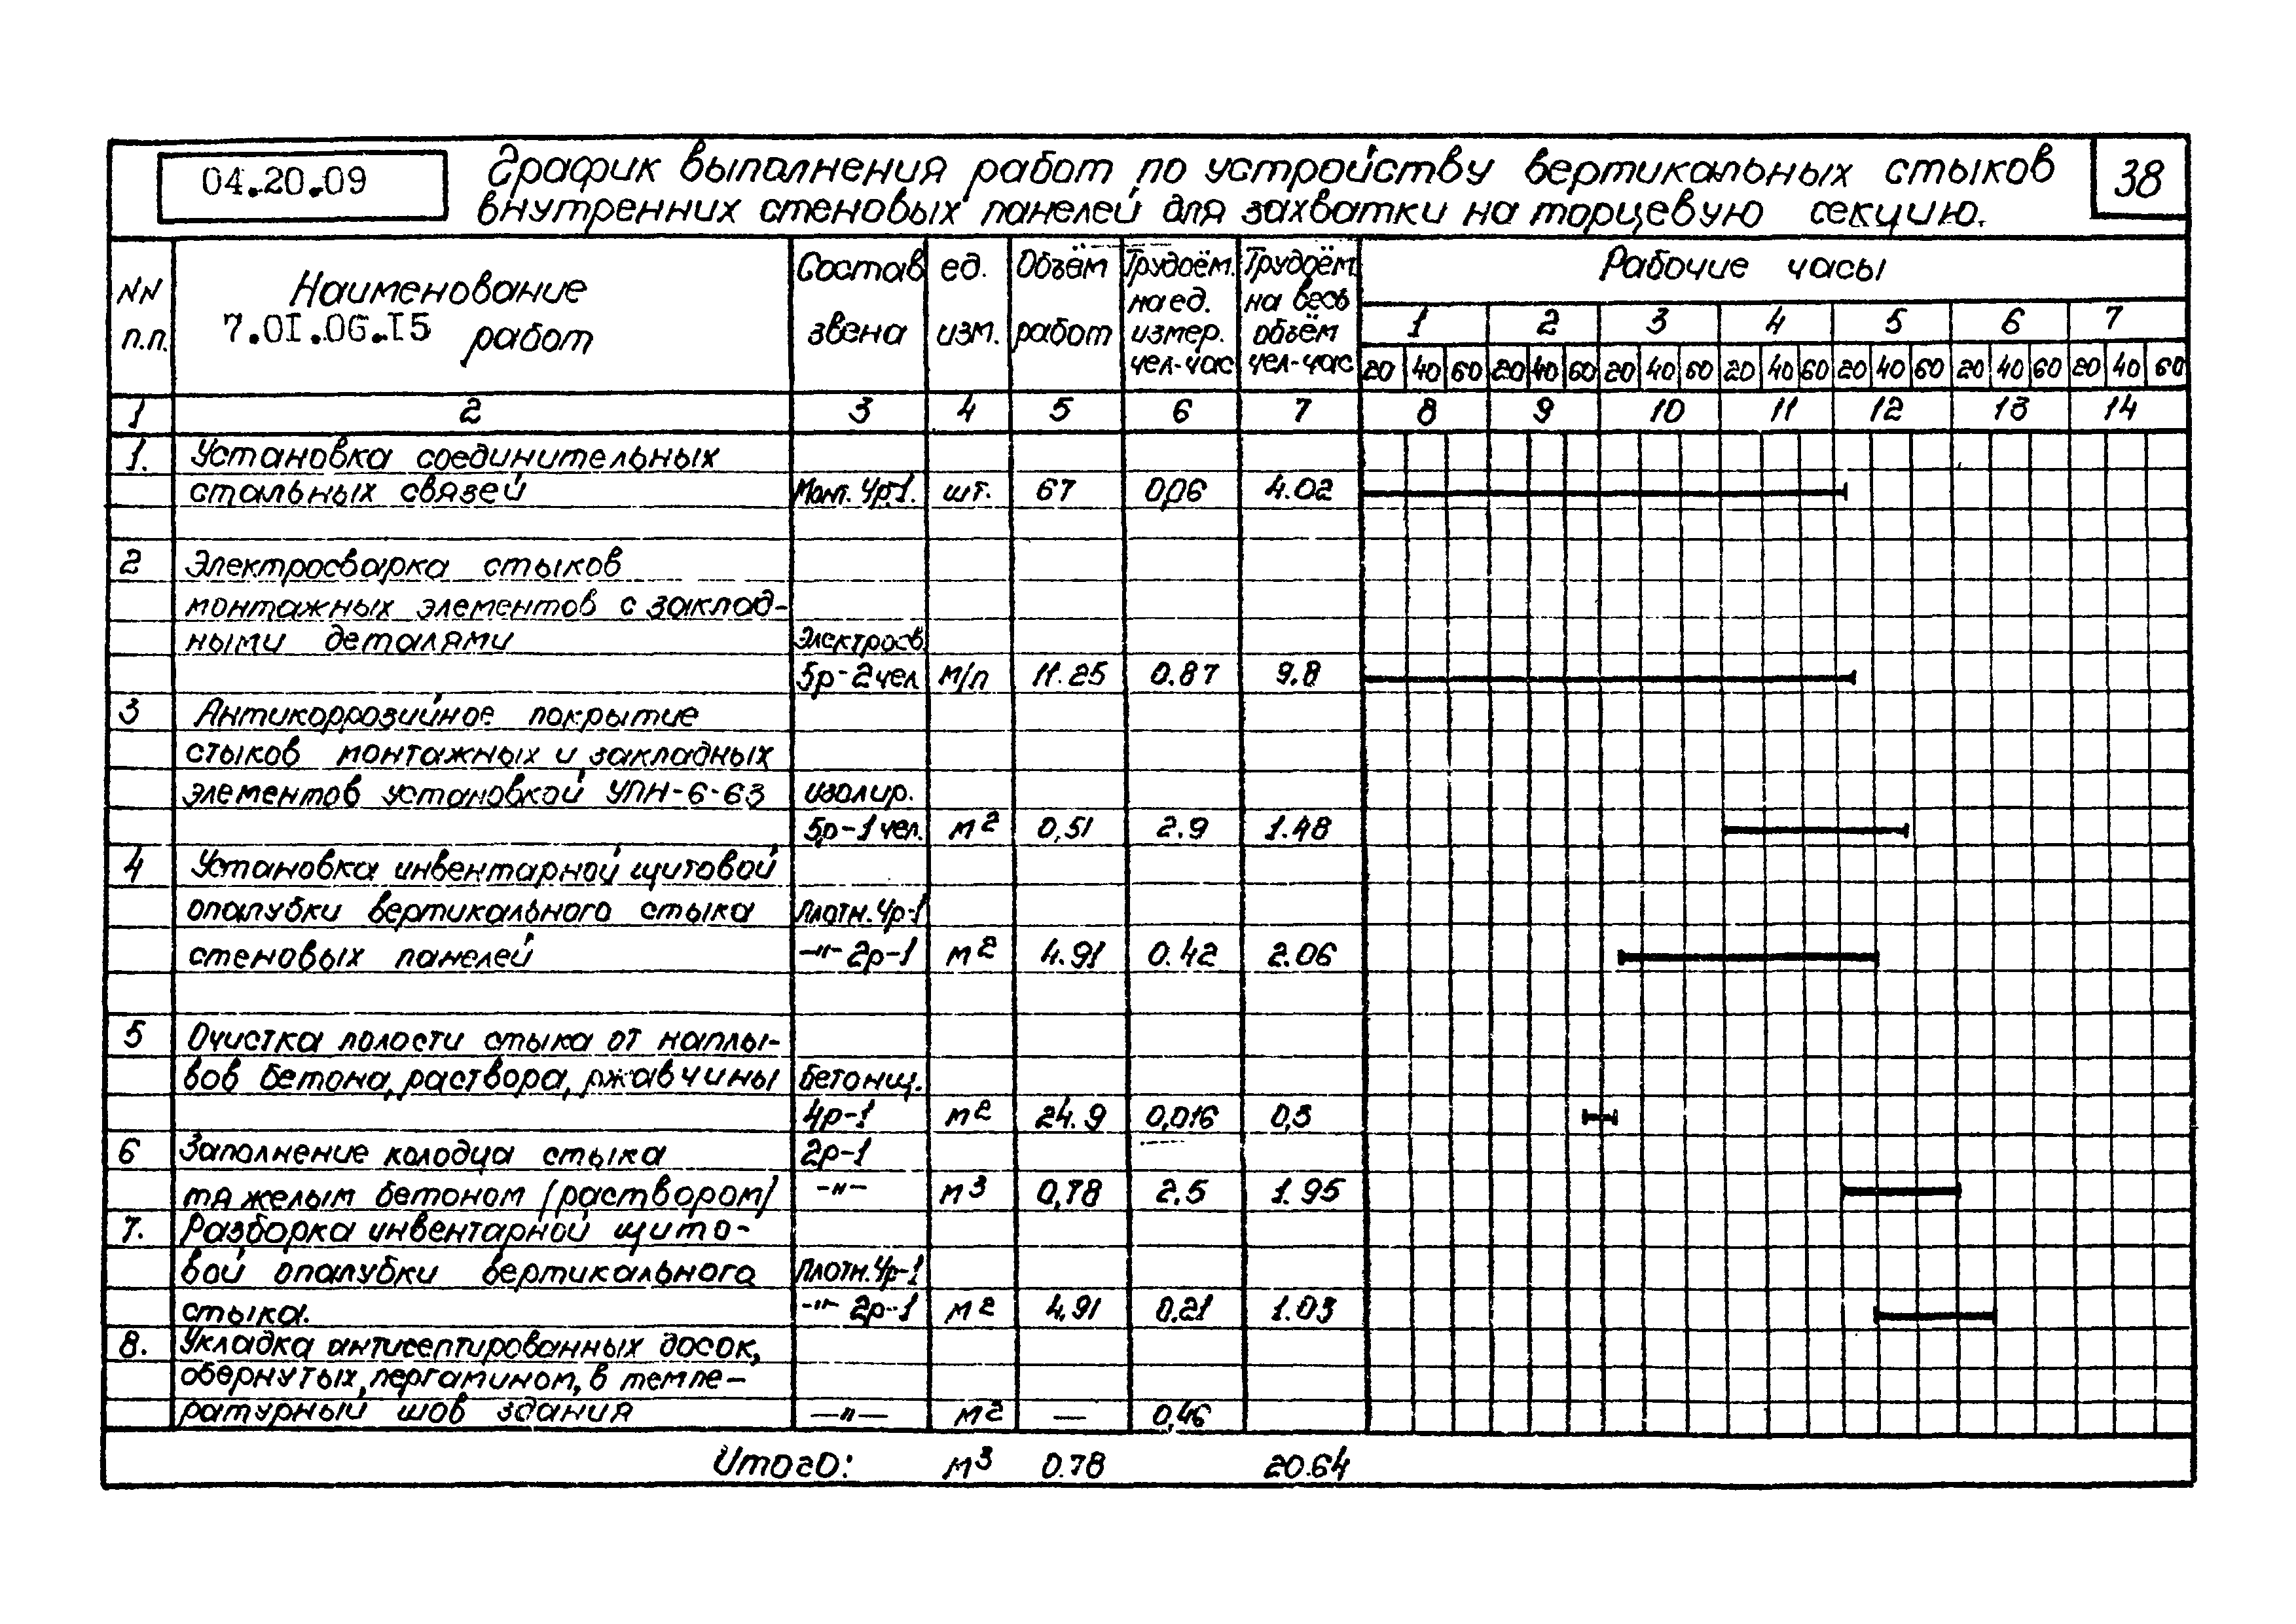 04.20.09
График выполнения работ по устройству вертикальных стыков
внутренних стеновых панелей для захватки на торцевую секцию.
38
NN п.п.
Наименование
7.01.06.15 работ
Состав звена
ед. изм.
Объём работ
Трудоём. на ед. измер. чел-час
Трудоём. на весь объём чел-час
Рабочие часы
1 2 3 4 5 6 7
20 40 60 20 40 60 20 40 60 20 40 60 20 40 60 20 40 60 20 40 60
1 2 3 4 5 6 7 8 9 10 11 12 13 14
1. Установка соединительных
стальных связей Монт. 4р.1. шт. 67 0,06 4.02
2 Электросварка стыков
монтажных элементов с заклад-
ными деталями Электросв.
5р-2чел м/п 11.25 0.87 9.8
3 Антикоррозийное покрытие
стыков монтажных и закладных
элементов установкой УПН-6-63 изолир.
5р-1 чел. м2 0,51 2.9 1.48
4 Установка инвентарной щитовой
опалубки вертикального стыка Плотн. 4р-1
стеновых панелей -"- 2р-1 м2 4.91 0.42 2.06
5 Очистка полости стыка от наплы-
вов бетона, раствора, ржавчины бетонщ.
4р-1 м2 24.9 0,016 0,3
6 Заполнение колодца стыка 2р-1
тяжелым бетоном (раствором) -"- м3 0,78 2.5 1.95
7. Разборка инвентарной щито-
вой опалубки вертикального Плотн. 4р-1
стыка. -"- 2р-1 м2 4,91 0.21 1.03
8. Укладка антисептированных досок,
обернутых, пергамином, в темпе-
ратурный шов здания —"— м2 — 0,46
Итого: м3 0.78 20.64